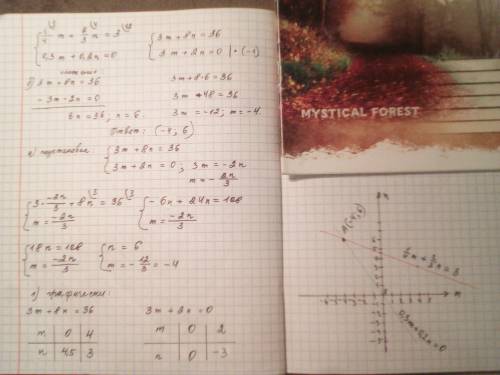 { 1/4 m + 2/3 n = 3
{ 0,3m + 0,2n = 0
{ 3m + 8n = 36
{ 3m + 2n = 0 | · (-1)
3m + 8n = 36
- 3m - 2n = 0
6n = 36; n = 6
3m + 8·6 = 36
3m + 48 = 36
3m = -12; m = -4
Ответ: (-4; 6)
{ 3m + 8n = 36
{ 3m + 2n = 0; 3m = -2n
m = - 2n/3
{ 3· -2n/3 + 8n = 36
{ m = -2n/3
{ -6n + 24n = 108
{ m = -2n/3
{ 18n = 108
{ m = -2n/3
{ n = 6
{ m = - 12/3 = -4
графически:
3m + 8n = 36
m 0 4
n 4,5 3
3m + 2n = 0
m 0 2
n 0 -3
MYSTICAL FOREST
n
A(-4; 6)
1/4 m + 2/3 n = 3
m
0,3m+0,2n=0